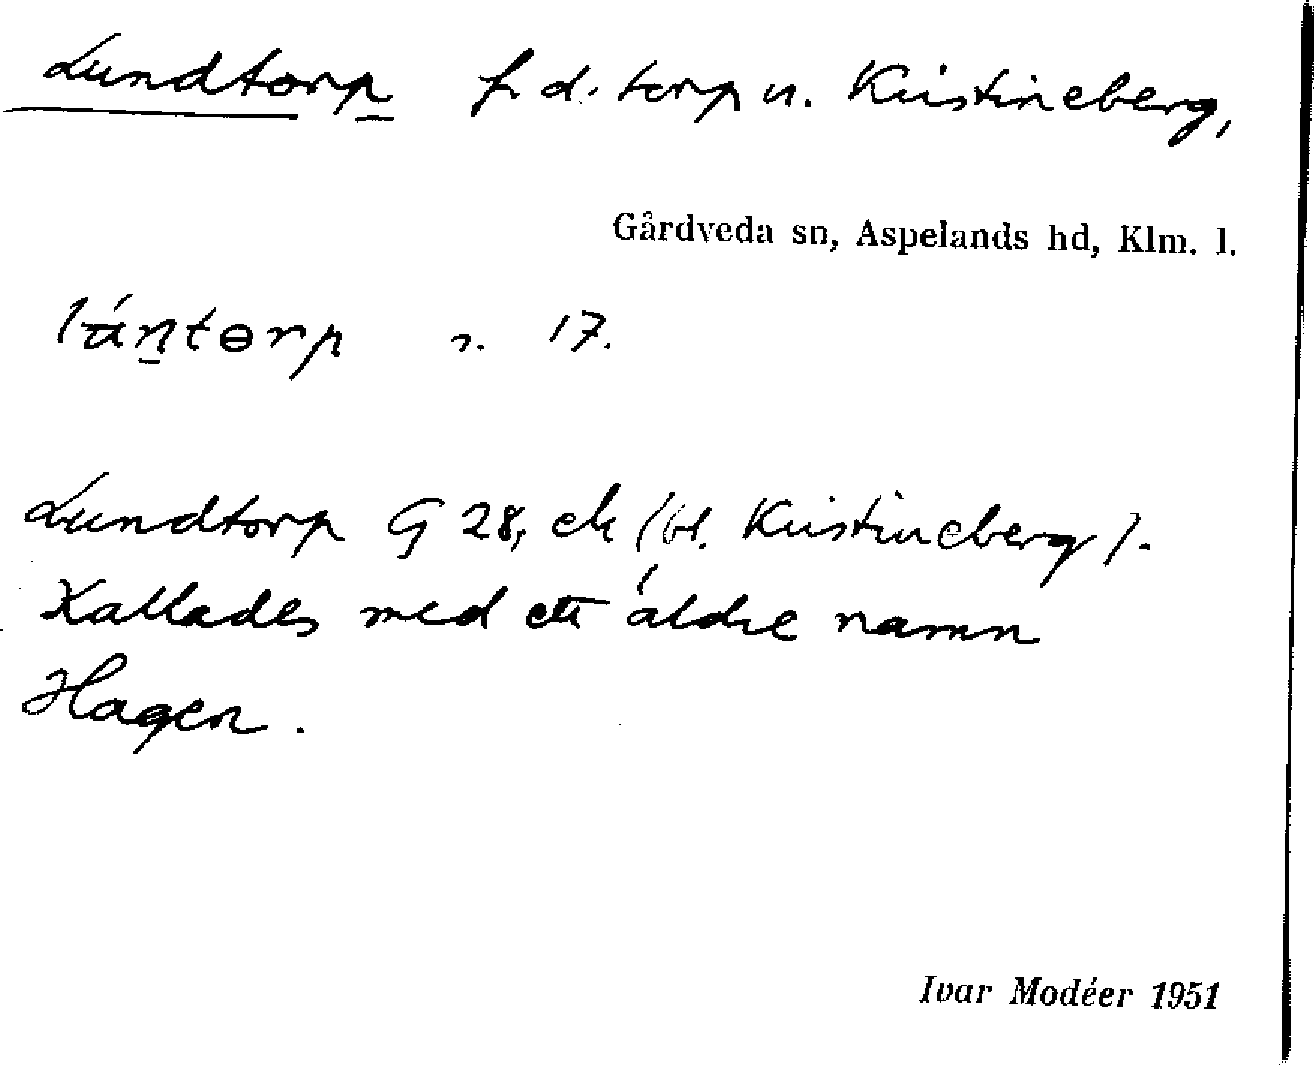 Lundtorp f. d. torp u. Kristineberg,
Gårdveda sn, Aspelands hd, Klm. l.
lántɵrp s. 17.
Lundtorp G 28, ek (bl. Kristineberg).
Kallades med ett äldre namn
Hagen.
Ivar Modéer 1951